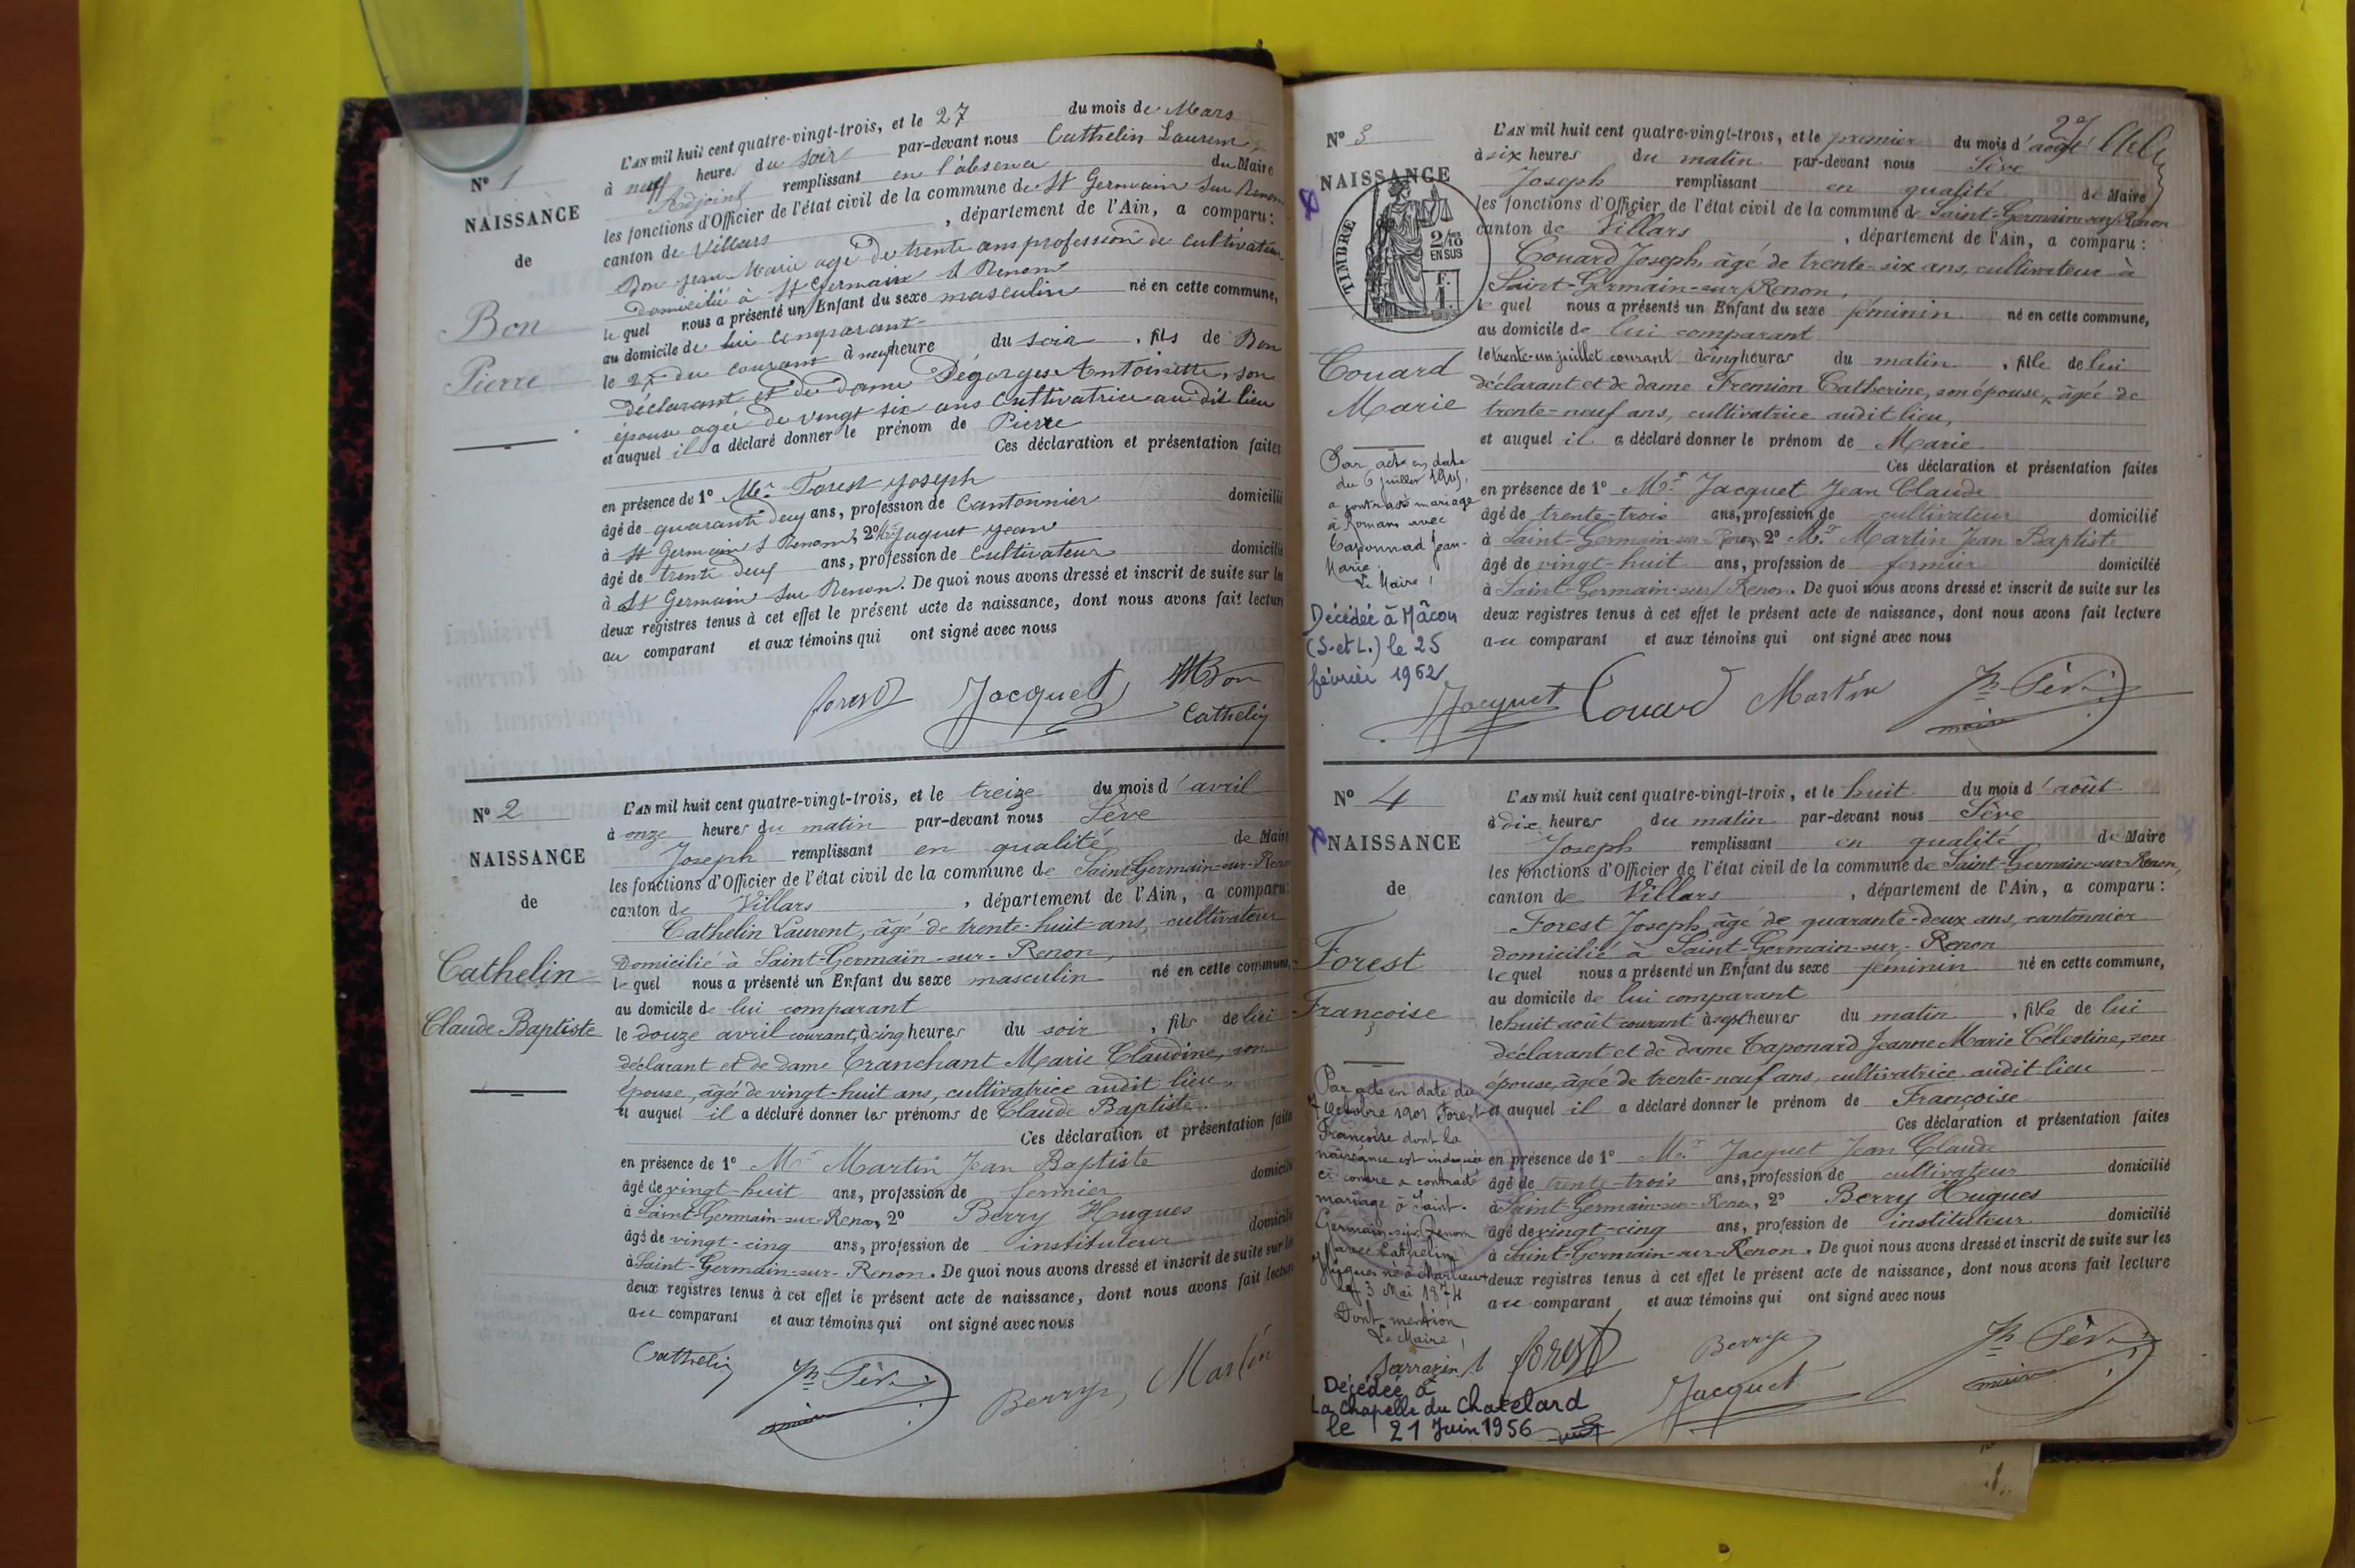 N° 1
NAISSANCE
de
Bon
Pierre
L'AN mil huit cent quatre-vingt-trois, et le 27 du mois de Mars
à neuf heure du soir par-devant nous Cathelin Laurent,
Adjoint remplissant en l'absence du Maire
les fonctions d'Officier de l'état civil de la commune de St Germain sur Renon
canton de Villars, département de l'Ain, a comparu:
Bon jean Marie agé de trente ans profession de cultivateur
domicilié à St Germain s Renon
le quel nous a présenté un Enfant du sexe masculin né en cette commune,
au domicile de lui comparant
le 27 du courant à neuf heure du soir, fils de Bon
déclarant et de dame Dégorges Antoinette, son
épouse agée de vingt six ans Cultivatrice au dit lieu
et auquel il a déclaré donner le prénom de Pierre
Ces déclaration et présentation faites
en présence de 1° Mr. Forest joseph
âgé de quarante deux ans, profession de Cantonnier domicilié
à St Germain s Renon, 2° Mr Jaquet jean
âgé de trente deux ans, profession de Cultivateur domicilié
à St Germain sur Renon. De quoi nous avons dressé et inscrit de suite sur les
deux registres tenus à cet effet le présent acte de naissance, dont nous avons fait lecture
au comparant et aux témoins qui ont signé avec nous
forest Jacquet Bon
Cathelin
N° 2
NAISSANCE
de
Cathelin
Claude Baptiste
L'AN mil huit cent quatre-vingt-trois, et le treize du mois d'avril
à onze heures du matin par-devant nous Sève
Joseph remplissant en qualité de Maire
les fonctions d'Officier de l'état civil de la commune de Saint-Germain-sur-Renon
canton de Villars, département de l'Ain, a comparu:
Cathelin Laurent, âgé de trente-huit ans, cultivateur
domicilié à Saint-Germain-sur-Renon,
le quel nous a présenté un Enfant du sexe masculin né en cette commune,
au domicile de lui comparant
le douze avril courant, à cinq heures du soir, fils de lui
déclarant et de dame Tranchant Marie Claudine, son
épouse, âgée de vingt-huit ans, cultivatrice audit lieu,
et auquel il a déclaré donner les prénoms de Claude Baptiste.
Ces déclaration et présentation faites
en présence de 1° Mr Martin Jean Baptiste
âgé de vingt-huit ans, profession de fermier domicilié
à Saint-Germain-sur-Renon, 2° Berry Hugues
âgé de vingt-cinq ans, profession de instituteur domicilié
à Saint-Germain-sur-Renon. De quoi nous avons dressé et inscrit de suite sur les
deux registres tenus à cet effet le présent acte de naissance, dont nous avons fait lecture
au comparant et aux témoins qui ont signé avec nous
Cathelin Jh Sève Berry Martin
maire
N° 3
NAISSANCE
TIMBRE
2/10
EN SUS
F.
1.
Couard
Marie
Par acte en date
du 6 juillet 1905,
a contracté mariage
à Romans avec
Taponnad Jean-
Marie.
Le Maire,
Décédée à Mâcon
(S.et L.) le 25
février 1962
27
L'AN mil huit cent quatre-vingt-trois, et le premier du mois d'août
à six heures du matin par-devant nous Sève
Joseph remplissant en qualité de Maire
les fonctions d'Officier de l'état civil de la commune de Saint-Germain-sur-Renon
canton de Villars, département de l'Ain, a comparu:
Couard Joseph, âgé de trente-six ans, cultivateur à
Saint-Germain-sur-Renon,
le quel nous a présenté un Enfant du sexe féminin né en cette commune,
au domicile de lui comparant
le trente-un juillet courant à cinq heures du matin, fille de lui
déclarant et de dame Fremion Catherine, son épouse, âgée de
trente-neuf ans, cultivatrice audit lieu,
et auquel il a déclaré donner le prénom de Marie
Ces déclaration et présentation faites
en présence de 1° Mr. Jacquet Jean Claude
âgé de trente-trois ans, profession de cultivateur domicilié
à Saint-Germain-sur-Renon, 2° Mr. Martin Jean Baptiste
âgé de vingt-huit ans, profession de fermier domicilié
à Saint-Germain-sur-Renon. De quoi nous avons dressé et inscrit de suite sur les
deux registres tenus à cet effet le présent acte de naissance, dont nous avons fait lecture
au comparant et aux témoins qui ont signé avec nous
Jacquet Couard Martin Jh Sève
maire
N° 4
NAISSANCE
de
Forest
Françoise
Par acte en date du
7 Octobre 1901 Forest
Françoise dont la
naissance est indiquée
ci contre a contracté
mariage à Saint-
Germain-sur-Renon
avec Cathelin
Hugues né à Marlieux
le 3 Mai 1874
Dont mention
Le Maire,
Sarrazin
Décédée à
La Chapelle du Chatelard
le 21 Juin 1956
L'AN mil huit cent quatre-vingt-trois, et le huit du mois d'août
à dix heures du matin par-devant nous Sève
Joseph remplissant en qualité de Maire
les fonctions d'Officier de l'état civil de la commune de Saint-Germain-sur-Renon,
canton de Villars, département de l'Ain, a comparu:
Forest Joseph, âgé de quarante-deux ans, cantonnier
domicilié à Saint-Germain-sur-Renon
le quel nous a présenté un Enfant du sexe féminin né en cette commune,
au domicile de lui comparant
le huit août courant à sept heures du matin, fille de lui
déclarant et de dame Taponard Jeanne Marie Célestine, son
épouse, âgée de trente-neuf ans, cultivatrice audit lieu
et auquel il a déclaré donner le prénom de Françoise
Ces déclaration et présentation faites
en présence de 1° Mr. Jacquet Jean Claude
âgé de trente-trois ans, profession de cultivateur domicilié
à Saint-Germain-sur-Renon, 2° Berry Hugues
âgé de vingt-cinq ans, profession de instituteur domicilié
à Saint-Germain-sur-Renon. De quoi nous avons dressé et inscrit de suite sur les
deux registres tenus à cet effet le présent acte de naissance, dont nous avons fait lecture
au comparant et aux témoins qui ont signé avec nous
forest Berry Jh Sève
Jacquet maire